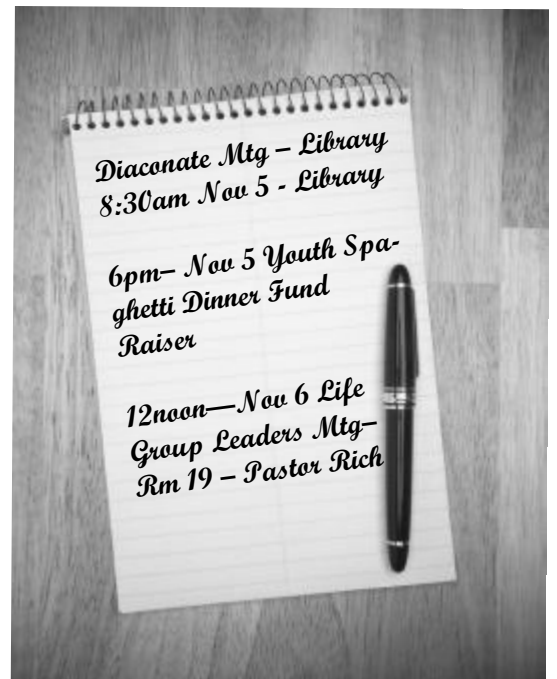 Diaconate Mtg – Library
8:30am Nov 5 - Library
6pm– Nov 5 Youth Spa-
ghetti Dinner Fund
Raiser
12noon—Nov 6 Life
Group Leaders Mtg–
Rm 19 – Pastor Rich